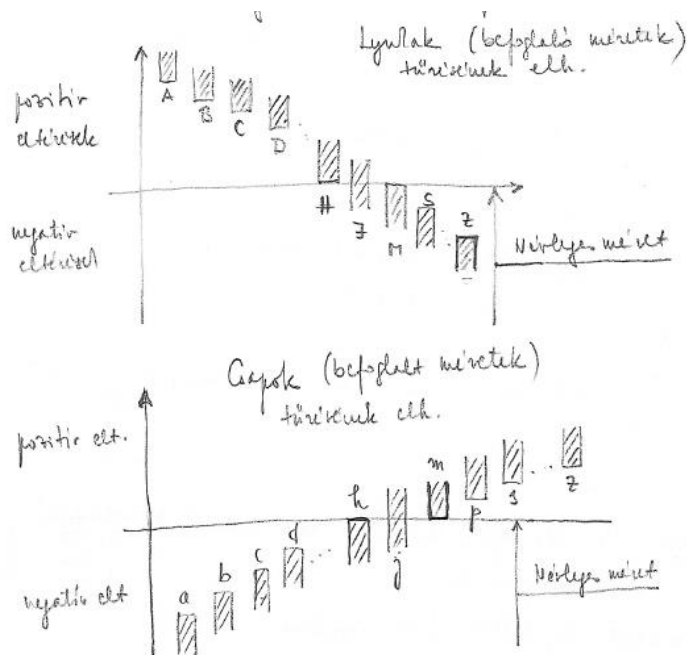 Lyukak (befoglaló méretek)
tűrésének elh.
pozitív
eltérések
A
B
C
D
H
J
M
S
Z
negatív
eltérések
Névleges méret
Csapok (befoglalt méretek)
tűrésének elh.
pozitív elt.
m
p
s
z
h
j
d
c
b
a
negatív elt
Névleges méret